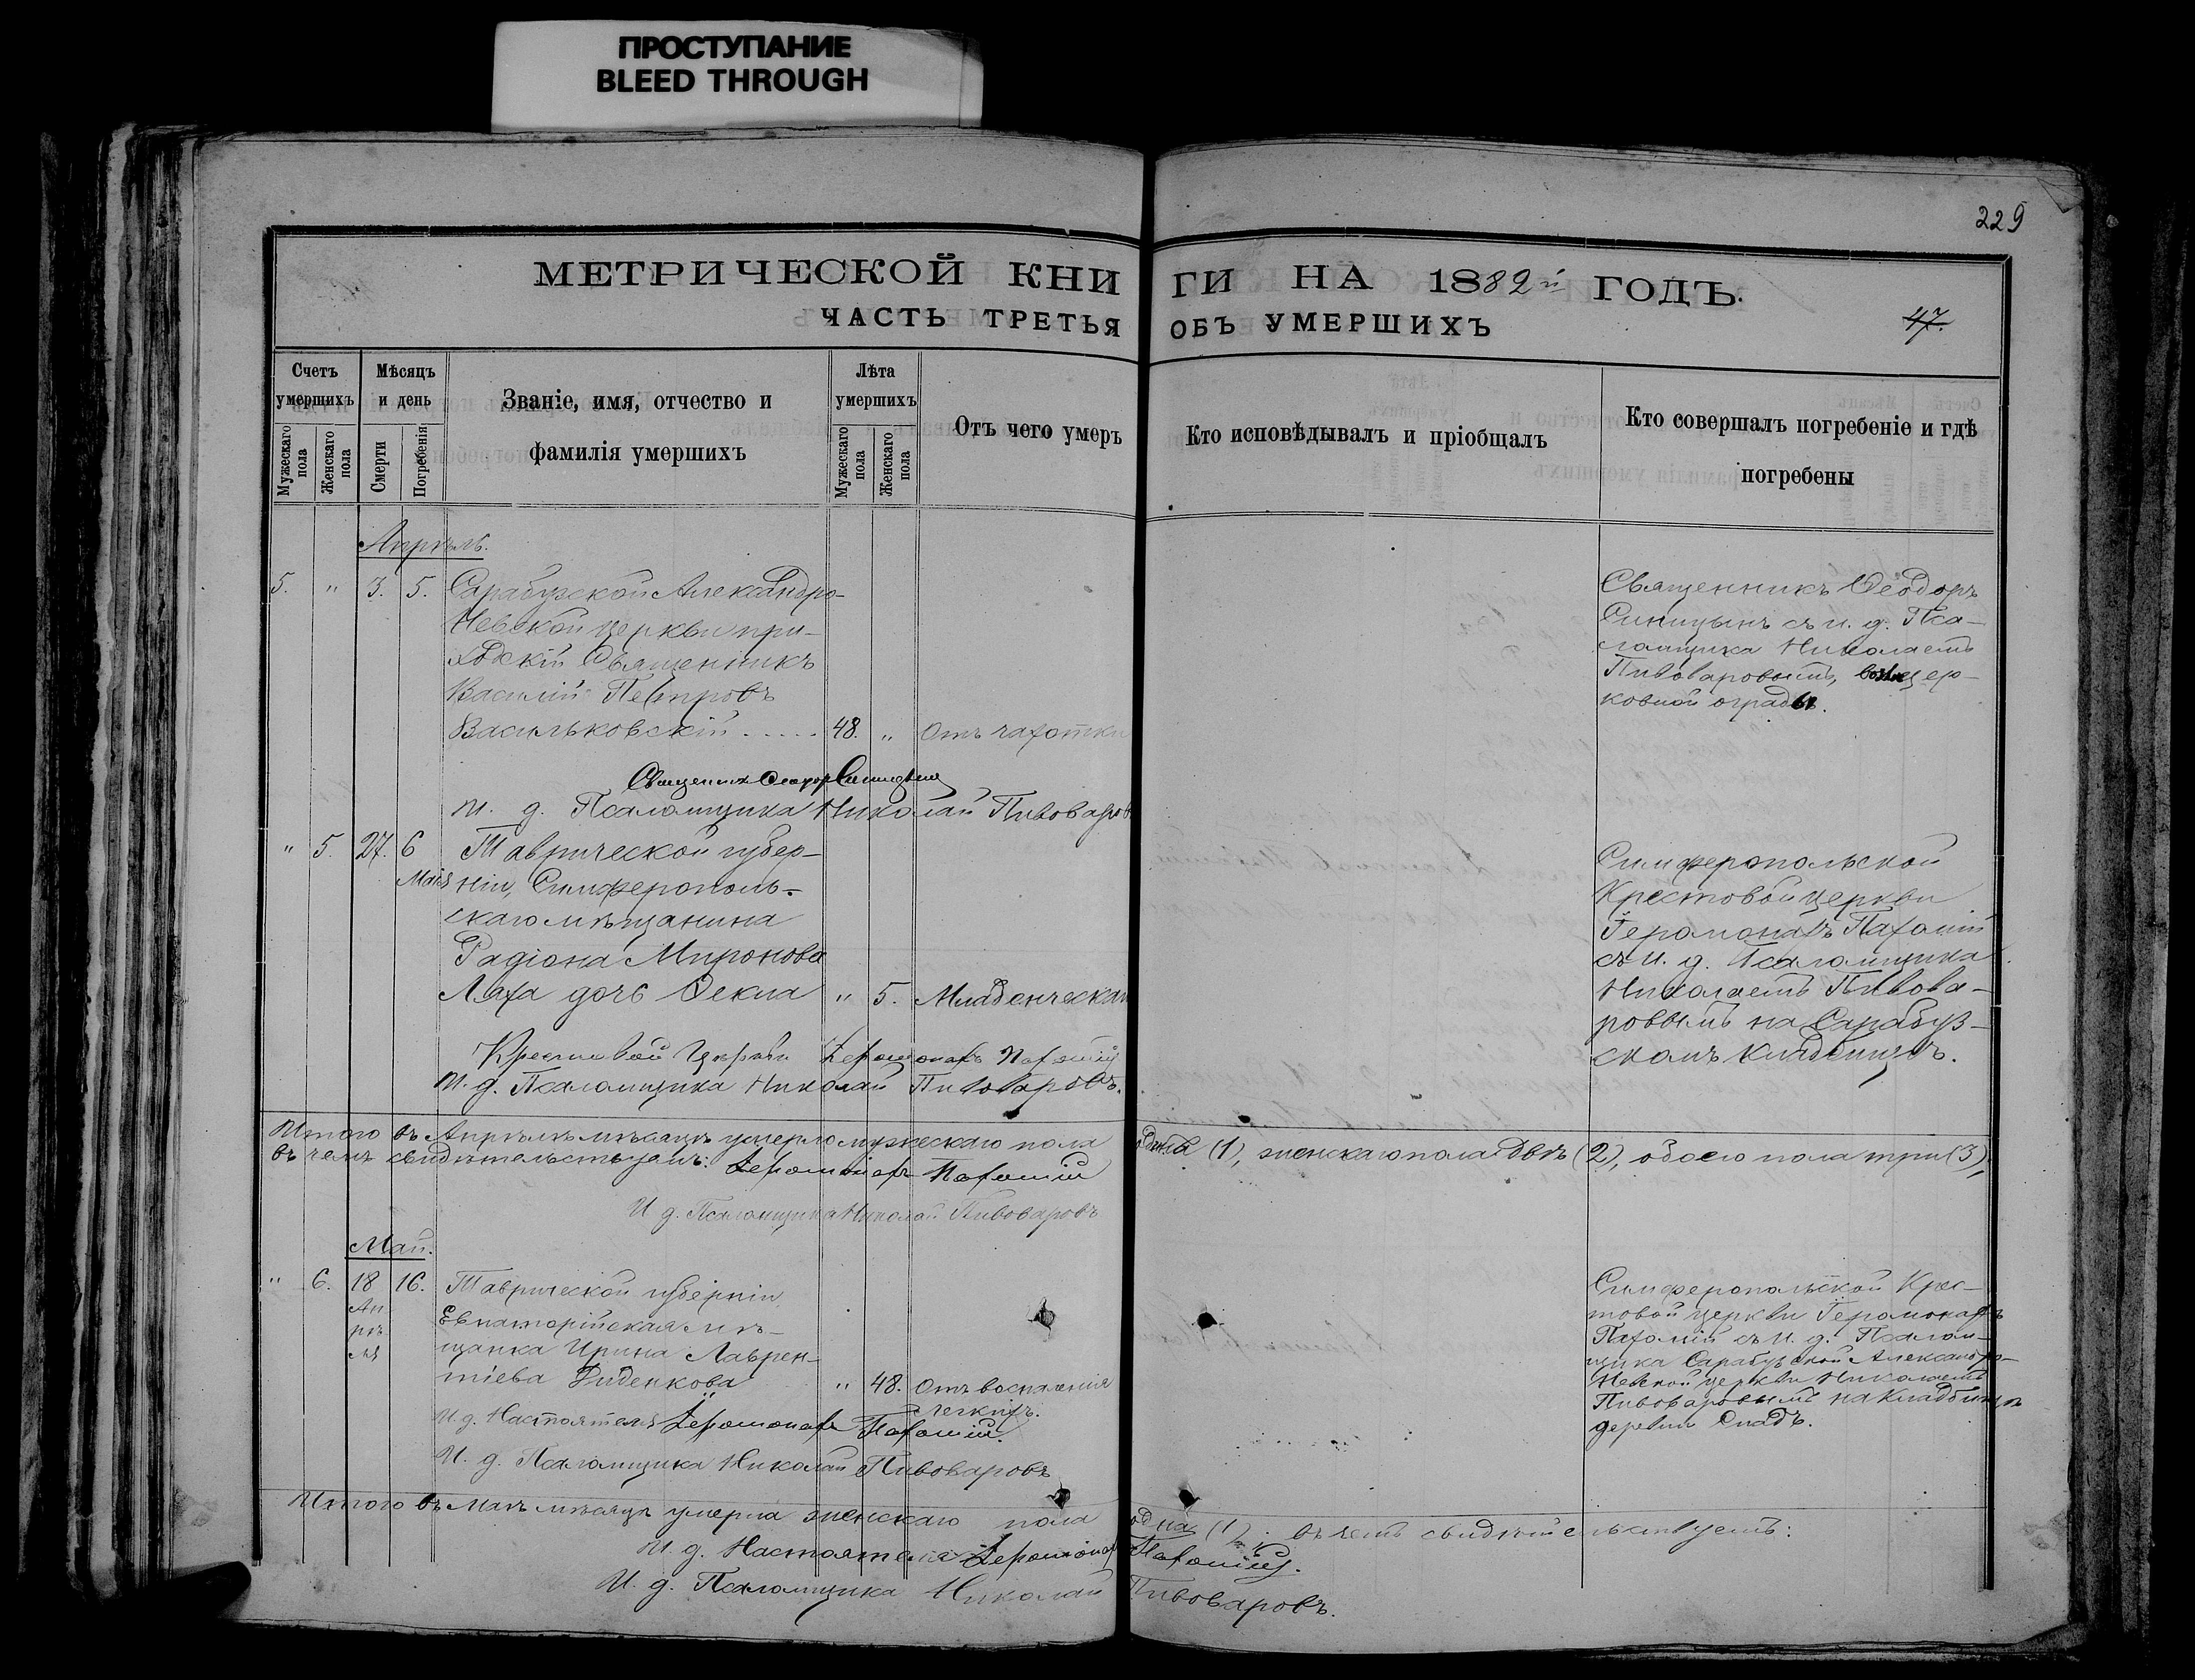 ПРОСТУПАНИЕ
BLEED THROUGH
229
МЕТРИЧЕСКОЙ КНИГИ НА 1882й ГОДЪ.
47.
ЧАСТЬ ТРЕТЬЯ ОБЪ УМЕРШИХЪ
Счетъ умершихъ
Мужескаго пола
Женскаго пола
Мѣсяцъ и день
Смерти
Погребенія
Званіе, имя, отчество и
фамилія умершихъ
Лѣта умершихъ
Мужескаго пола
Женскаго пола
Отъ чего умеръ
Кто исповѣдывалъ и пріобщалъ
Кто совершалъ погребеніе и гдѣ
погребены
Апрѣль.
5. " 3. 5. Сарабузской Александро-
Невской церкви при-
ходскій Священникъ
Василій Петровъ
Васильковскій ..... 48. " Отъ чахотки
Священникъ Ѳеодоръ
Синицынъ съ и. д. Пса-
ломщика Николаемъ
Пивоваровымъ, возлѣ цер-
ковной ограды.
Священникъ Ѳеодоръ Синицынъ
И. д. Псаломщика Николай Пивоваровъ
" 5. 27. 6 Мая Таврической губер-
ніи, Симферополь-
скаго мѣщанина
Радіона Миронова
Лаха дочь Ѳекла " 5. Младенческая
Симферопольской
Крестовой церкви
Іеромонахъ Пахомій
съ и. д. Псаломщика
Николаемъ Пивова-
ровымъ на Сарабуз-
скомъ кладбищѣ.
Крестовой Церкви Іеромонахъ Пахомій
И. д. Псаломщика Николай Пивоваровъ.
Итого въ Апрѣлѣ мѣсяцѣ умерло мужескаго пола одинъ (1), женскаго пола двѣ (2), обоего пола три (3),
въ чемъ свидѣтельствуемъ: Іеромонахъ Пахомій
И д. Псаломщика Николай Пивоваровъ
Май.
" 6. 18 Апрѣля 16. Таврической губерніи
Евпаторійская мѣ-
щанка Ирина Лаврен-
тіева Диденкова " 48. Отъ воспаленія
легкихъ.
Симферопольской Крес-
товой церкви Іеромонахъ
Пахомій съ и. д. Псалом-
щика Сарабузской Александро-
Невской церкви Николаемъ
Пивоваровымъ на кладбищѣ
деревни
И. д. Настоятеля Іеромонахъ Пахомій.
И. д. Псаломщика Николай Пивоваровъ
Итого въ Маѣ мѣсяцѣ умерла женскаго пола одна (1). въ чемъ свидѣтельствуемъ:
И. д. Настоятеля Іеромонахъ Пахомій.
И. д. Псаломщика Николай Пивоваровъ.